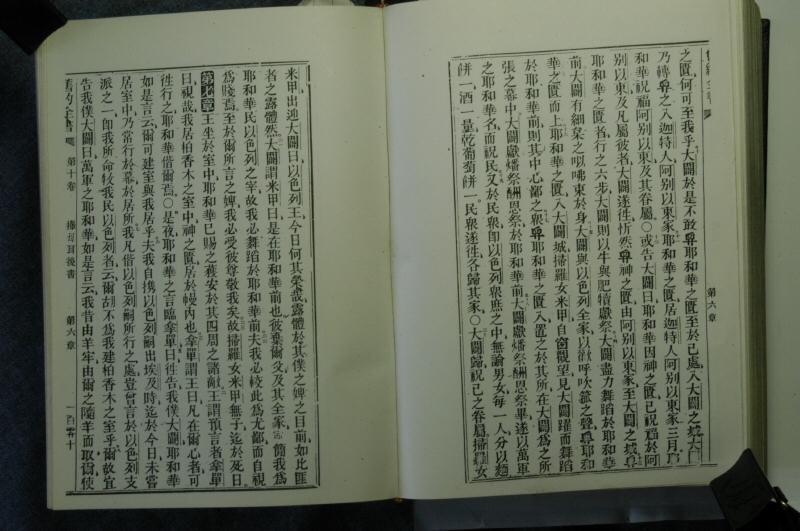 舊約全書
第六章
之匱何可至我乎大闢於是不敢舁耶和華之匱至於己處入大闢之城大闢
乃轉舁之入迦特人阿別以東家耶和華之匱居迦特人阿別以東家三月耶
和華祝福阿別以東及其眷屬○或告大闢曰耶和華因神之匱已祝福於阿
別以東及凡屬彼者大闢遂徃忻然舁神之匱由阿別以東家至大闢之城舁
耶和華之匱者行之六步大闢則以牛與肥犢獻祭大闢盡力舞蹈於耶和華
前大闢有細枲之
東於身大闢與以色列全家以歡呼吹箛之聲舁耶和
華之匱而上耶和華之匱入大闢城掃羅女米甲自窗觀望見大闢躍而舞蹈
於耶和華前則其中心鄙之衆舁耶和華之匱入置之於其所在大闢爲之所
張之幕中大闢獻燔祭酬恩祭於耶和華前大闢獻燔祭酬恩祭畢遂以萬軍
之耶和華名而祝民又於民衆卽以色列衆庶之中無論男女每一人分以麵
餅一酒一量乾葡萄餅一民衆遂徃各歸其家○大闢歸祝己之眷屬掃羅女
米甲出迎大闢曰以色列王今日何其榮哉露體於其僕之婢之目前如比匪
者之露體然大闢謂米甲曰是在耶和華前也彼棄爾父及其全家
簡我爲
耶和華民以色列之宰故我必舞蹈於耶和華前夫我必較此爲尤鄙而自視
爲賤焉至於爾所言之婢我必受彼尊敬我矣故掃羅女米甲無子迄於死日
第七章
王坐於室中耶和華已賜之獲安於其四周之諸敵王謂預言者拿單
曰視哉我居柏香木之室中神之匱居於幔內也拿單謂王曰凡在爾心者可
徃行之耶和華偕爾焉○是夜耶和華之言臨拿單曰徃告我僕大闢耶和華
如是言云爾可建室與我居乎夫我自攜以色列嗣出埃及時迄於今日未嘗
居室中乃常行於幕於居所我凡偕以色列嗣所行之處豈曾言於以色列支
派之一卽我所命牧我民以色列者云爾胡不爲我建柏香木之室乎爾故宜
告我僕大闢曰萬軍之耶和華如是言云我昔由羊牢由爾之隨羊而取爾使
舊約全書
第十卷
撒母耳後書
第六章
一百零十